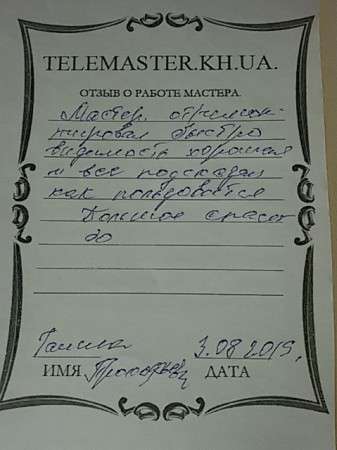 TELEMASTER.KH.UA.
ОТЗЫВ О РАБОТЕ МАСТЕРА.
Мастер отремон-
тировал быстро
видимость хорошая
и все подсказал
как пользоватся
Большое спаси
бо
Галина 3.08 2019,
ИМЯ ДАТА